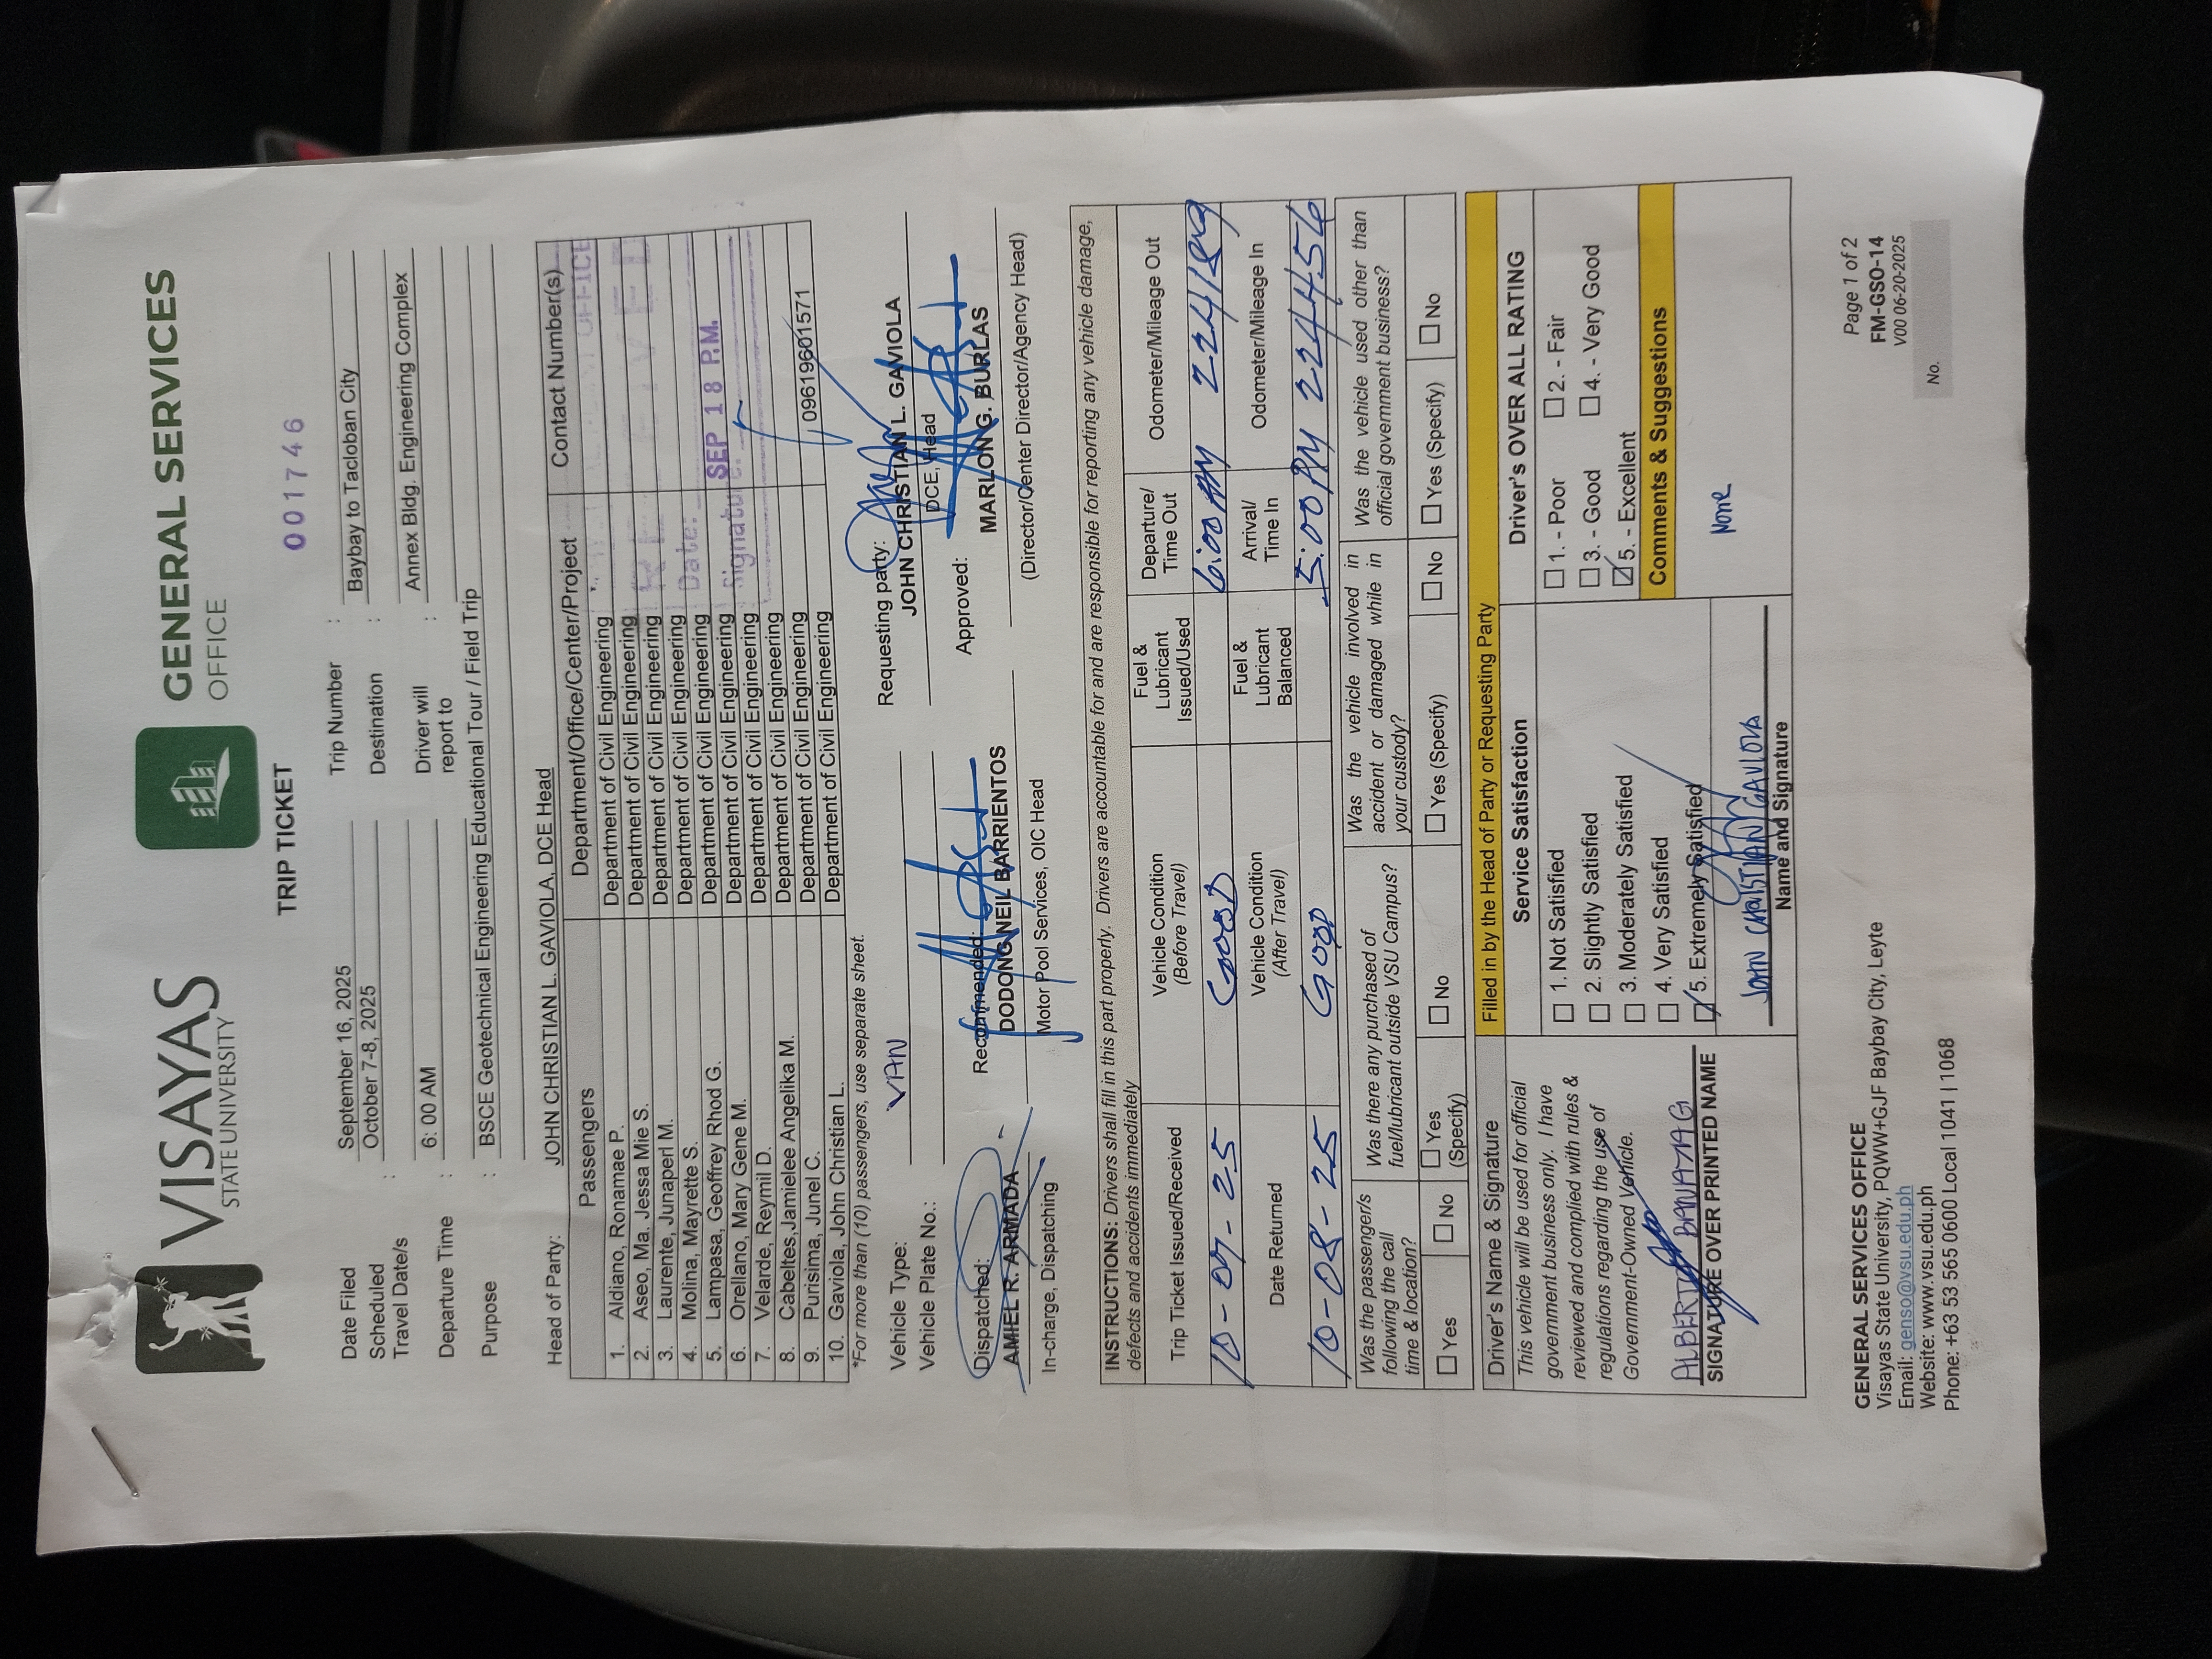 VISAYAS
STATE UNIVERSITY
GENERAL SERVICES
OFFICE
TRIP TICKET
001746
Date Filed September 16, 2025 Trip Number :
Scheduled Travel Date/s : October 7-8, 2025 Destination : Baybay to Tacloban City
Departure Time : 6: 00 AM Driver will report to : Annex Bldg. Engineering Complex
Purpose : BSCE Geotechnical Engineering Educational Tour / Field Trip
Head of Party: JOHN CHRISTIAN L. GAVIOLA, DCE Head
Passengers Department/Office/Center/Project Contact Number(s)
1. Aldiano, Ronamae P. Department of Civil Engineering
2. Aseo, Ma. Jessa Mie S. Department of Civil Engineering
3. Laurente, Junaperl M. Department of Civil Engineering
4. Molina, Mayrette S. Department of Civil Engineering
5. Lampasa, Geoffrey Rhod G. Department of Civil Engineering
6. Orellano, Mary Gene M. Department of Civil Engineering
7. Velarde, Reymil D. Department of Civil Engineering
8. Cabeltes,Jamielee Angelika M. Department of Civil Engineering
9. Purisima, Junel C. Department of Civil Engineering
10. Gaviola, John Christian L. Department of Civil Engineering 09619601571
OFFICE
Date:
SEP 18 P.M.
Signature:
*For more than (10) passengers, use separate sheet.
Vehicle Type: VAN
Vehicle Plate No.:
Requesting party:
JOHN CHRISTIAN L. GAVIOLA
DCE, Head
Dispatched: Recommended: Approved:
AMIEL R. ARMADA DODONG NEIL BARRIENTOS MARLON G. BURLAS
In-charge, Dispatching Motor Pool Services, OIC Head (Director/Center Director/Agency Head)
INSTRUCTIONS: Drivers shall fill in this part properly. Drivers are accountable for and are responsible for reporting any vehicle damage,
defects and accidents immediately
Trip Ticket Issued/Received Vehicle Condition (Before Travel) Fuel & Lubricant Issued/Used Departure/ Time Out Odometer/Mileage Out
10-07-25 GOOD 6:00 AM 224189
Date Returned Vehicle Condition (After Travel) Fuel & Lubricant Balanced Arrival/ Time In Odometer/Mileage In
10-08-25 GOOD 5:00 PM 224456
Was the passenger/s following the call time & location? Was there any purchased of fuel/lubricant outside VSU Campus? Was the vehicle involved in accident or damaged while in your custody? Was the vehicle used other than official government business?
Yes No Yes (Specify) No Yes (Specify) No Yes (Specify) No
Driver's Name & Signature
This vehicle will be used for official
government business only. I have
reviewed and complied with rules &
regulations regarding the use of
Government-Owned Vehicle.
ALBERTO BANATAG
SIGNATURE OVER PRINTED NAME
Filled in by the Head of Party or Requesting Party
Service Satisfaction
1. Not Satisfied
2. Slightly Satisfied
3. Moderately Satisfied
4. Very Satisfied
5. Extremely Satisfied
JOHN CHRISTIAN GAVIOLA
Name and Signature
Driver's OVER ALL RATING
1. - Poor 2. - Fair
3. - Good 4. - Very Good
5. - Excellent
Comments & Suggestions
None
GENERAL SERVICES OFFICE
Visayas State University, PQWW+GJF Baybay City, Leyte
Email: genso@vsu.edu.ph
Website: www.vsu.edu.ph
Phone: +63 53 565 0600 Local 1041 | 1068
Page 1 of 2
FM-GSO-14
V00 06-20-2025
No.